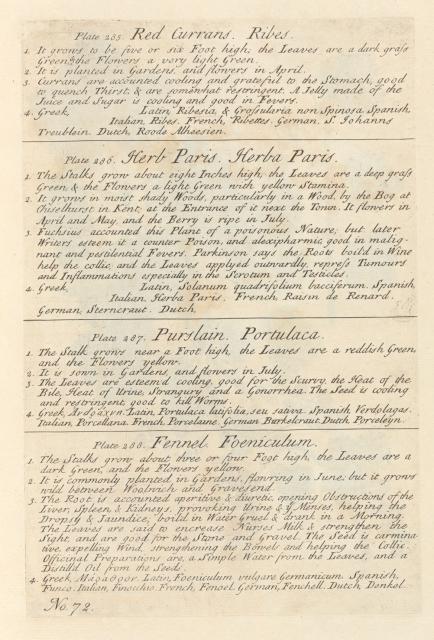 Plate 285. Red Currans. Ribes.
1. It grows to be five or six Foot high; the Leaves are a dark grass
Green, & the Flowers a very light Green.
2. It is planted in Gardens, and flowers in April.
3. Currans are accounted cooling and grateful to the Stomach, good
to quench Thirst, & are somewhat restringent. A Jelly made of the
Juice and Sugar is cooling and good in Fevers.
4. Greek, Latin, Ribesia, & Grossularia non Spinosa, Spanish,
Italian, Ribes. French, Ribettes. German, S. Johanns
Treublein. Dutch, Roode Albeesien.
Plate 286. Herb Paris. Herba Paris.
1. The Stalks grow about eight Inches high; the Leaves are a deep grass
Green, & the Flowers a light Green with yellow Stamina.
2. It grows in moist shady Woods, particularly in a Wood, by the Bog at
Chiselhurst in Kent, at the Entrance of it next the Town. It flowers in
April and May, and the Berry is ripe in July.
3. Fuchsius accounted this Plant of a poisonous Nature; but later
Writers esteem it a counter Poison, and alexipharmic, good in malig-
nant and pestilential Fevers. Parkinson says the Roots boild in Wine
help the collic, and the Leaves applyed outwardly, repress Tumours
and Inflammations especially in the Scrotum and Testicles.
4. Greek, Latin, Solanum quadrifolium bacciferum. Spanish,
Italian, Herba Paris. French, Raisin de Renard.
German, Sterncraut. Dutch,
Plate 287. Purslain. Portulaca.
1. The Stalk grows near a Foot high, the Leaves are a reddish Green,
and the Flowers yellow.
2. It is sown in Gardens, and flowers in July.
3. The Leaves are esteem'd cooling, good for the Scurvy, the Heat of the
Bile, Heat of Urine, Strangury and a Gonorrhea. The Seed is cooling
and restringent, good to kill Worms.
4. Greek, Latin, Portulaca latifolia, seu sativa. Spanish, Verdolagas.
Italian, Porcellana. French, Porcelaine. German, Burkelcraut. Dutch, Porceleyn.
Plate 288. Fennel. Foeniculum.
1. The Stalks grow about three or four Foot high, the Leaves are a
dark Green, and the Flowers yellow.
2. It is commonly planted in Gardens, flowring in June; but it grows
wild between Woolwich and Gravesend.
3. The Root is accounted aperitive & diuretic, opening Obstructions of the
Liver, Spleen & Kidneys, provoking Urine & ye Menses, helping the
Dropsy & Jaundice, boild in Water Gruel & drank in a Morning.
The Leaves are said to encrease Nurses Milk & strengthen the
Sight, and are good for the Stone and Gravel. The Seed is carmina
tive, expelling Wind, strengthening the Bowels and helping the Collic.
Officinal Preparations are, a Simple Water from the Leaves, and a
Distilld Oil from the Seeds.
4. Greek, Latin, Foeniculum vulgare Germanicum. Spanish,
Italian, Finochio. French, Fenoel. German, Fenchell. Dutch, Venkel.
No. 72.